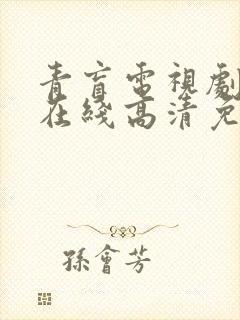 青盲電視劇
在綫高清免
孫會芳